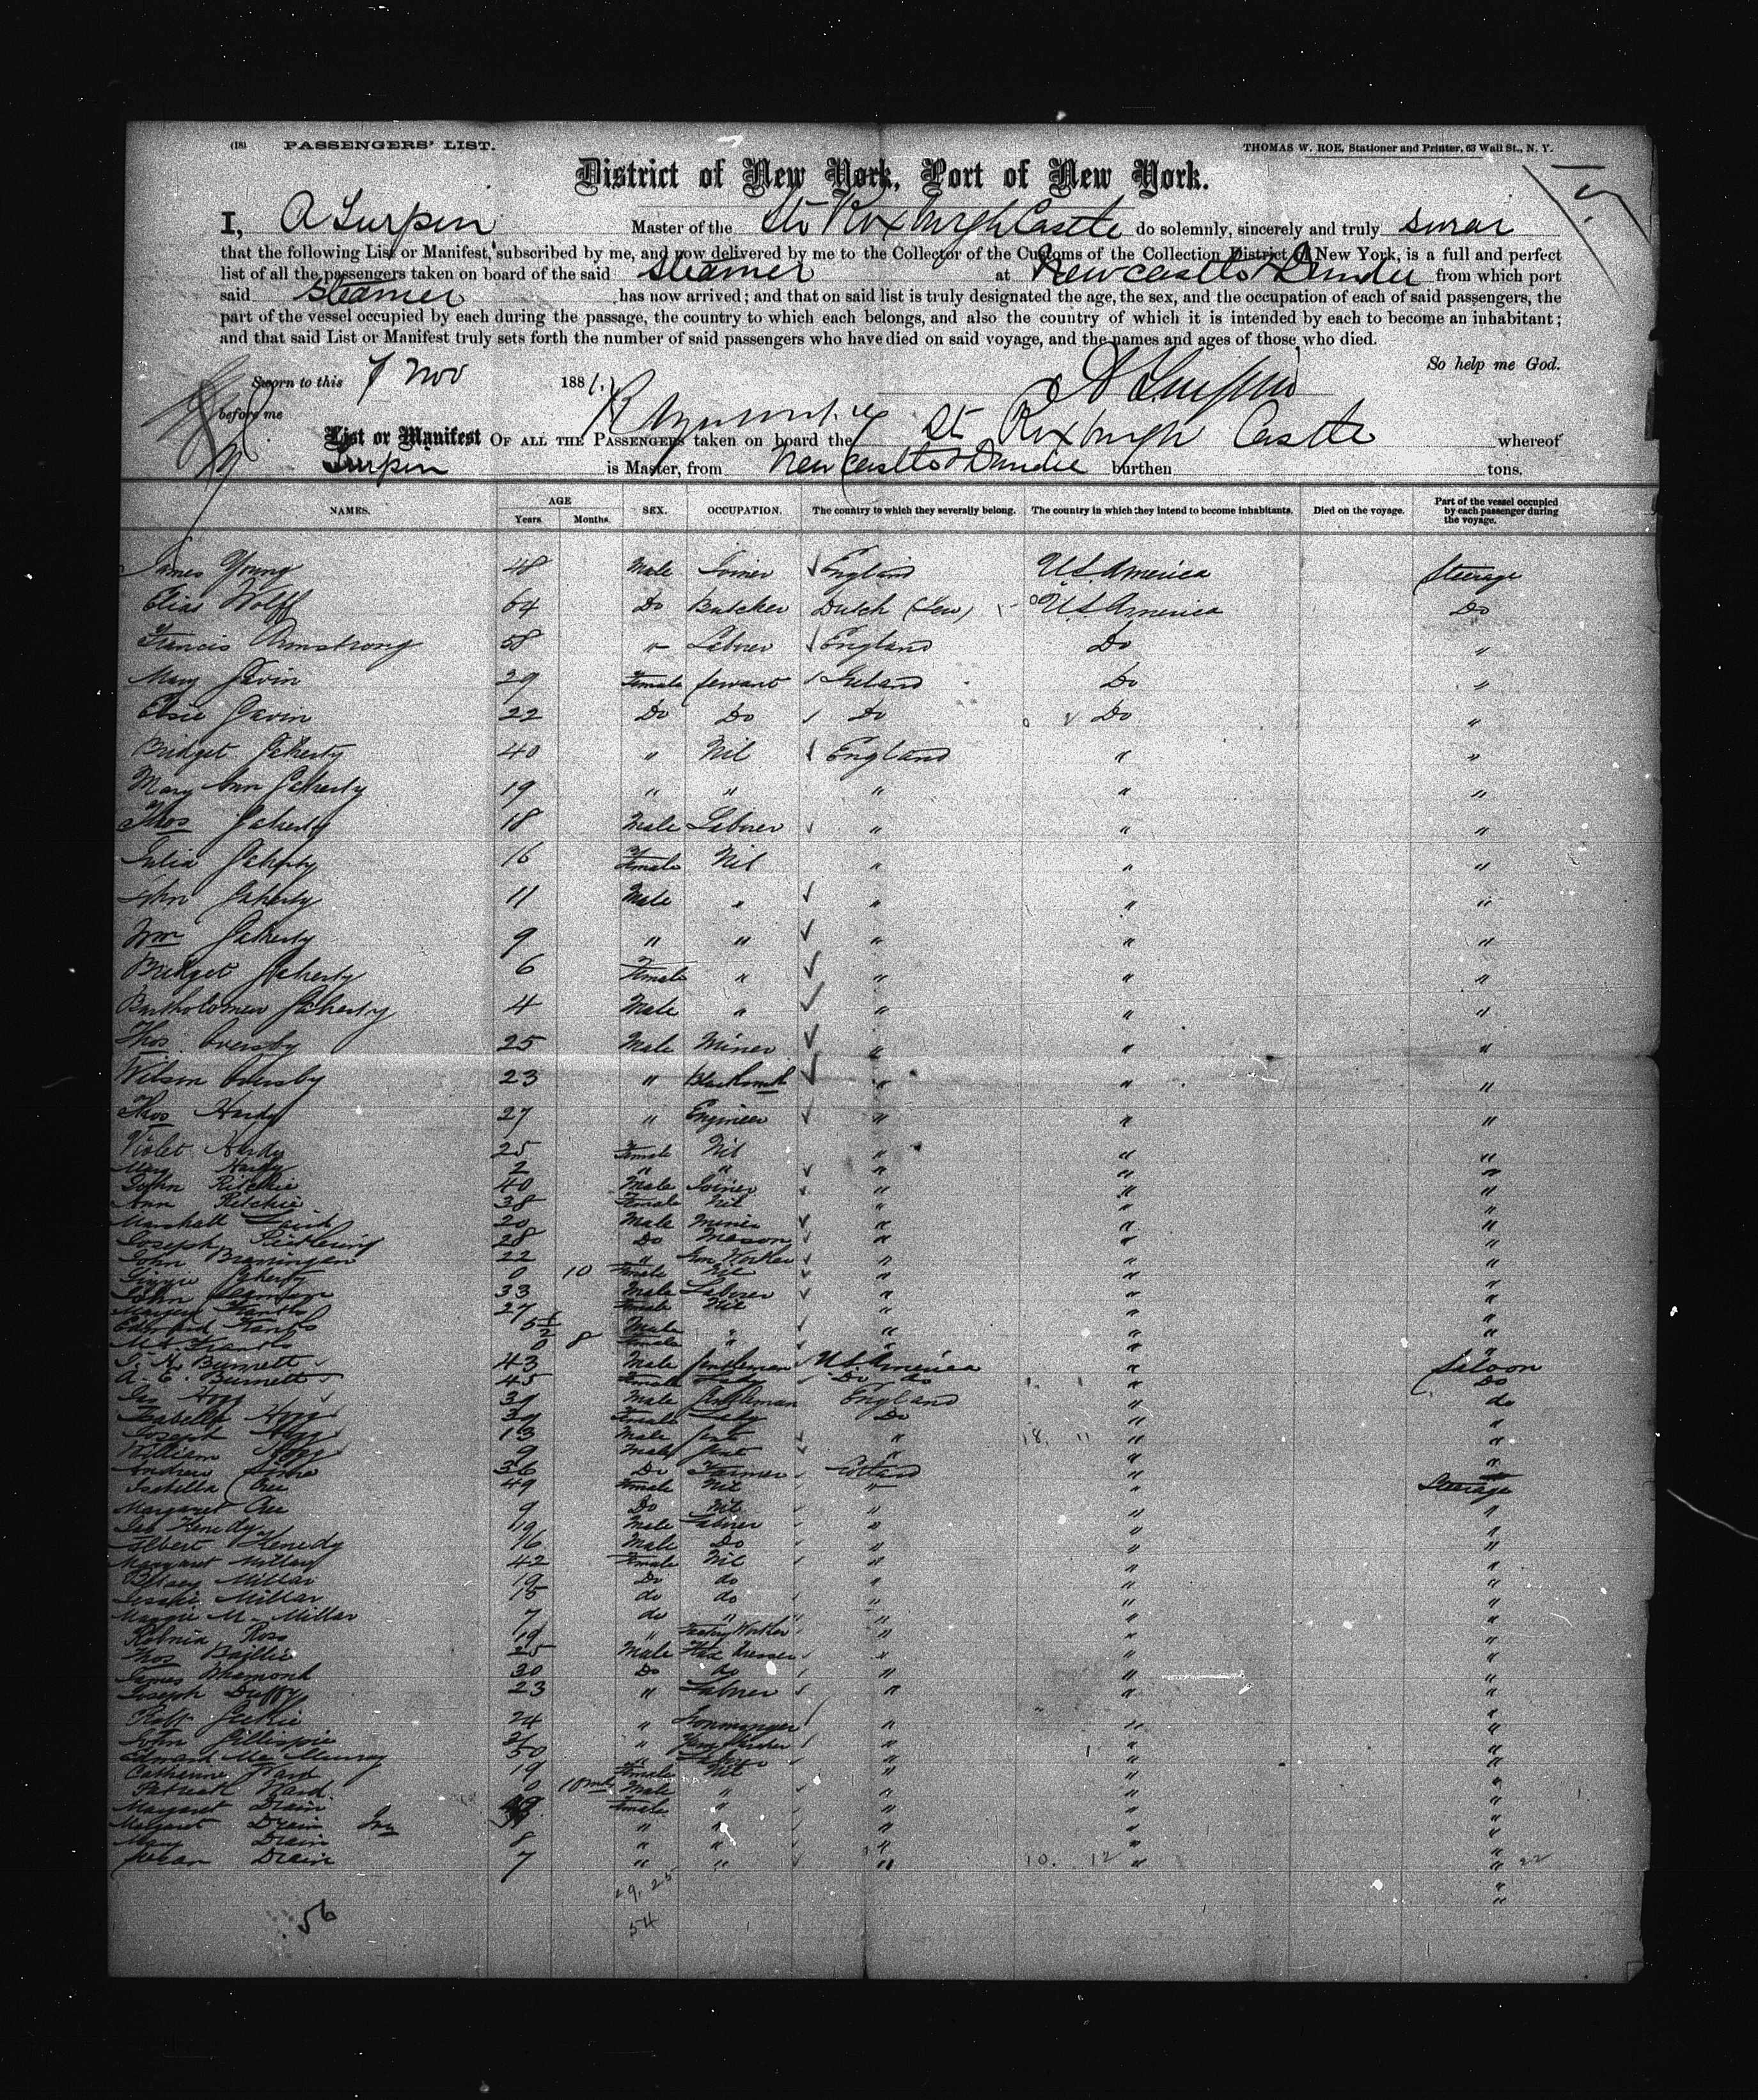 (18) PASSENGERS' LIST. THOMAS W. ROE, Stationer and Printer, 63 Wall St., N. Y.
District of New York, Port of New York.
I, A Turpin Master of the Str Roxburgh Castle do solemnly, sincerely and truly swear
that the following List or Manifest, subscribed by me, and now delivered by me to the Collector of the Customs of the Collection District of New York, is a full and perfect
list of all the passengers taken on board of the said Steamer at Newcastle & Dundee from which port
said Steamer has now arrived; and that on said list is truly designated the age, the sex, and the occupation of each of said passengers, the
part of the vessel occupied by each during the passage, the country to which each belongs, and also the country of which it is intended by each to become an inhabitant;
and that said List or Manifest truly sets forth the number of said passengers who have died on said voyage, and the names and ages of those who died.
So help me God.
Sworn to this 7 Nov 1881. A Turpin
before me
List or Manifest OF ALL THE PASSENGERS taken on board the St Roxburgh Castle whereof
Turpin is Master, from Newcastle & Dundee burthen tons.
NAMES. AGE Years. Months. SEX. OCCUPATION. The country to which they severally belong. The country in which they intend to become inhabitants. Died on the voyage. Part of the vessel occupied by each passenger during the voyage.
James Young 48 Male Joiner England U.S. America Steerage
Elias Wolff 64 Do Butcher Dutch (Jew) U.S. America Do
Francis Armstrong 58 " Laborer England Do "
Mary Gavin 29 Female Servant Ireland Do "
Elsie Gavin 22 Do Do Do Do "
Bridget Faherty 40 " Nil England " "
Mary Ann Faherty 19 " " " " "
Thos Faherty 18 Male Laborer " " "
Julia Faherty 16 Female Nil " " "
John Faherty 11 Male " " " "
Wm Faherty 9 " " " " "
Bridget Faherty 6 Female " " " "
Bartholomew Faherty 4 Male " " " "
Thos Oversby 25 Male Miner " " "
Wilson Oversby 23 " Blacksmith " " "
Thos Hardy 27 " Engineer " " "
Violet Hardy 25 Female Nil " " "
Mary Hardy 2 " " " " "
John Ritchie 40 Male Joiner " " "
Ann Ritchie 38 Female Nil " " "
Marshall 20 Male Miner " " "
Joseph 28 Do Mason " " "
John 22 " Iron Worker " " "
Lizzie Faherty 0 10 Female Nil " " "
John 33 Male Laborer " " "
27 Female Nil " " "
5 1/2 Male " " " "
0 8 Female " " " "
Burnett 43 Male Gentleman U.S. America " Saloon
A. C. Burnett 45 Female Lady Do do " Do
Jas Hogg Male Gentleman England " do
Isabella Hogg Female Lady Do " "
Joseph Hogg 13 Male Gent " " "
William Hogg 9 Male Gent " " "
Andrew 36 Do Farmer Scotland "
Isabella Cree 49 Female Nil " " Steerage
Margaret Cree 9 Do Nil " " "
Jas Kenedy 19 Male Laborer " " "
Albert Kenedy 16 Male Do " " "
Margaret Millar 42 Female Nil " " "
Betsey Millar 19 Do do " " "
Jessie Millar 15 do do " " "
Maggie M. Millar 7 do " " " "
Ross 19 " Factory Worker " " "
Thos Baillie 25 Male Flax Dresser " " "
James Whamond 30 Do do " " "
Joseph Duffy 23 " Laborer " " "
Robt 24 " Ironmonger " " "
John Gillespie " " " "
Edward Mc Murray 50 " Laborer " " "
Catherine Ward 19 Female Nil " " "
Patrick Ward 0 10 mths Male " " " "
Margaret Drain Female " " " "
Margaret Drain Jun " " " " "
Mary Drain 8 " " " " "
Susan Drain 7 " " " 10. 12 " " 22
29, 25
56 54